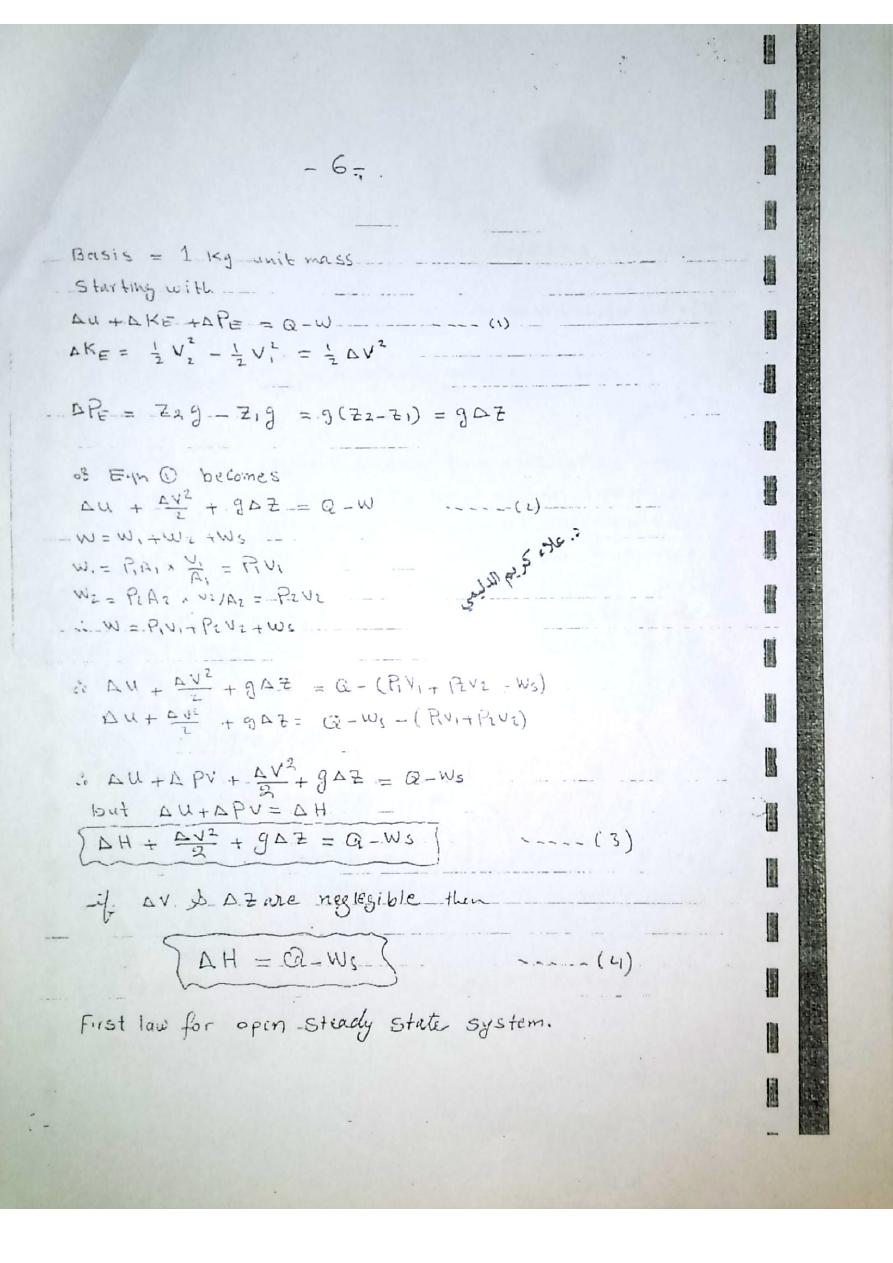 - 6 -
Basis = 1 Kg unit mass
Starting with
Δu + ΔKE + ΔPE = Q - W ------- (1)
ΔKE = ½ V₂² - ½ V₁² = ½ ΔV²
ΔPE = Z₂g - Z₁g = g(Z₂-Z₁) = gΔZ
∴ Eqn ① becomes
Δu + ΔV²/2 + gΔZ = Q - W ------(2)
W = W₁ + W₂ + Ws
W₁ = P₁A₁ × V₁/A₁ = P₁V₁
د. علاء كريم الدليمي
W₂ = P₂A₂ × V₂/A₂ = P₂V₂
∴ W = P₁V₁ + P₂V₂ + Ws
∴ Δu + ΔV²/2 + gΔZ = Q - (P₁V₁ + P₂V₂ - Ws)
Δu + ΔV²/2 + gΔZ = Q - Ws - (P₁V₁ + P₂V₂)
∴ ΔU + ΔPV + ΔV²/2 + gΔZ = Q - Ws
but ΔU + ΔPV = ΔH
ΔH + ΔV²/2 + gΔZ = Q - Ws ------ (3)
if ΔV & ΔZ are neglegible then
ΔH = Q - Ws ------- (4)
First law for open steady state system.